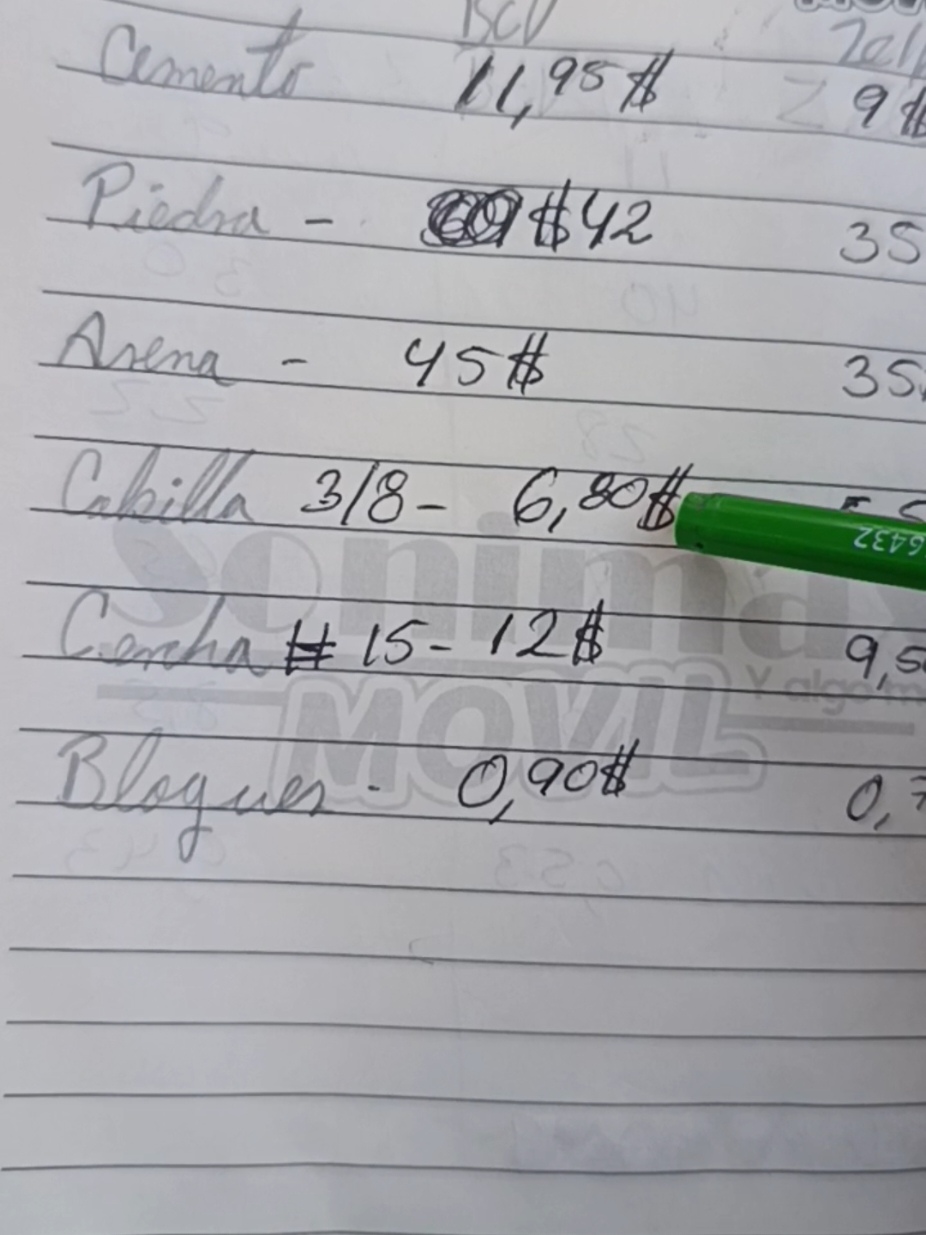 BCV Zelle
Cemento 11,95$ 9$
Piedra - $42 35
Arena - 45$ 35
Cabilla 3/8 - 6,80$
Cercha # 15 - 12$ 9,5
Bloques - 0,90$ 0,7
Sonimax
Y algo m
MOVIL
6432